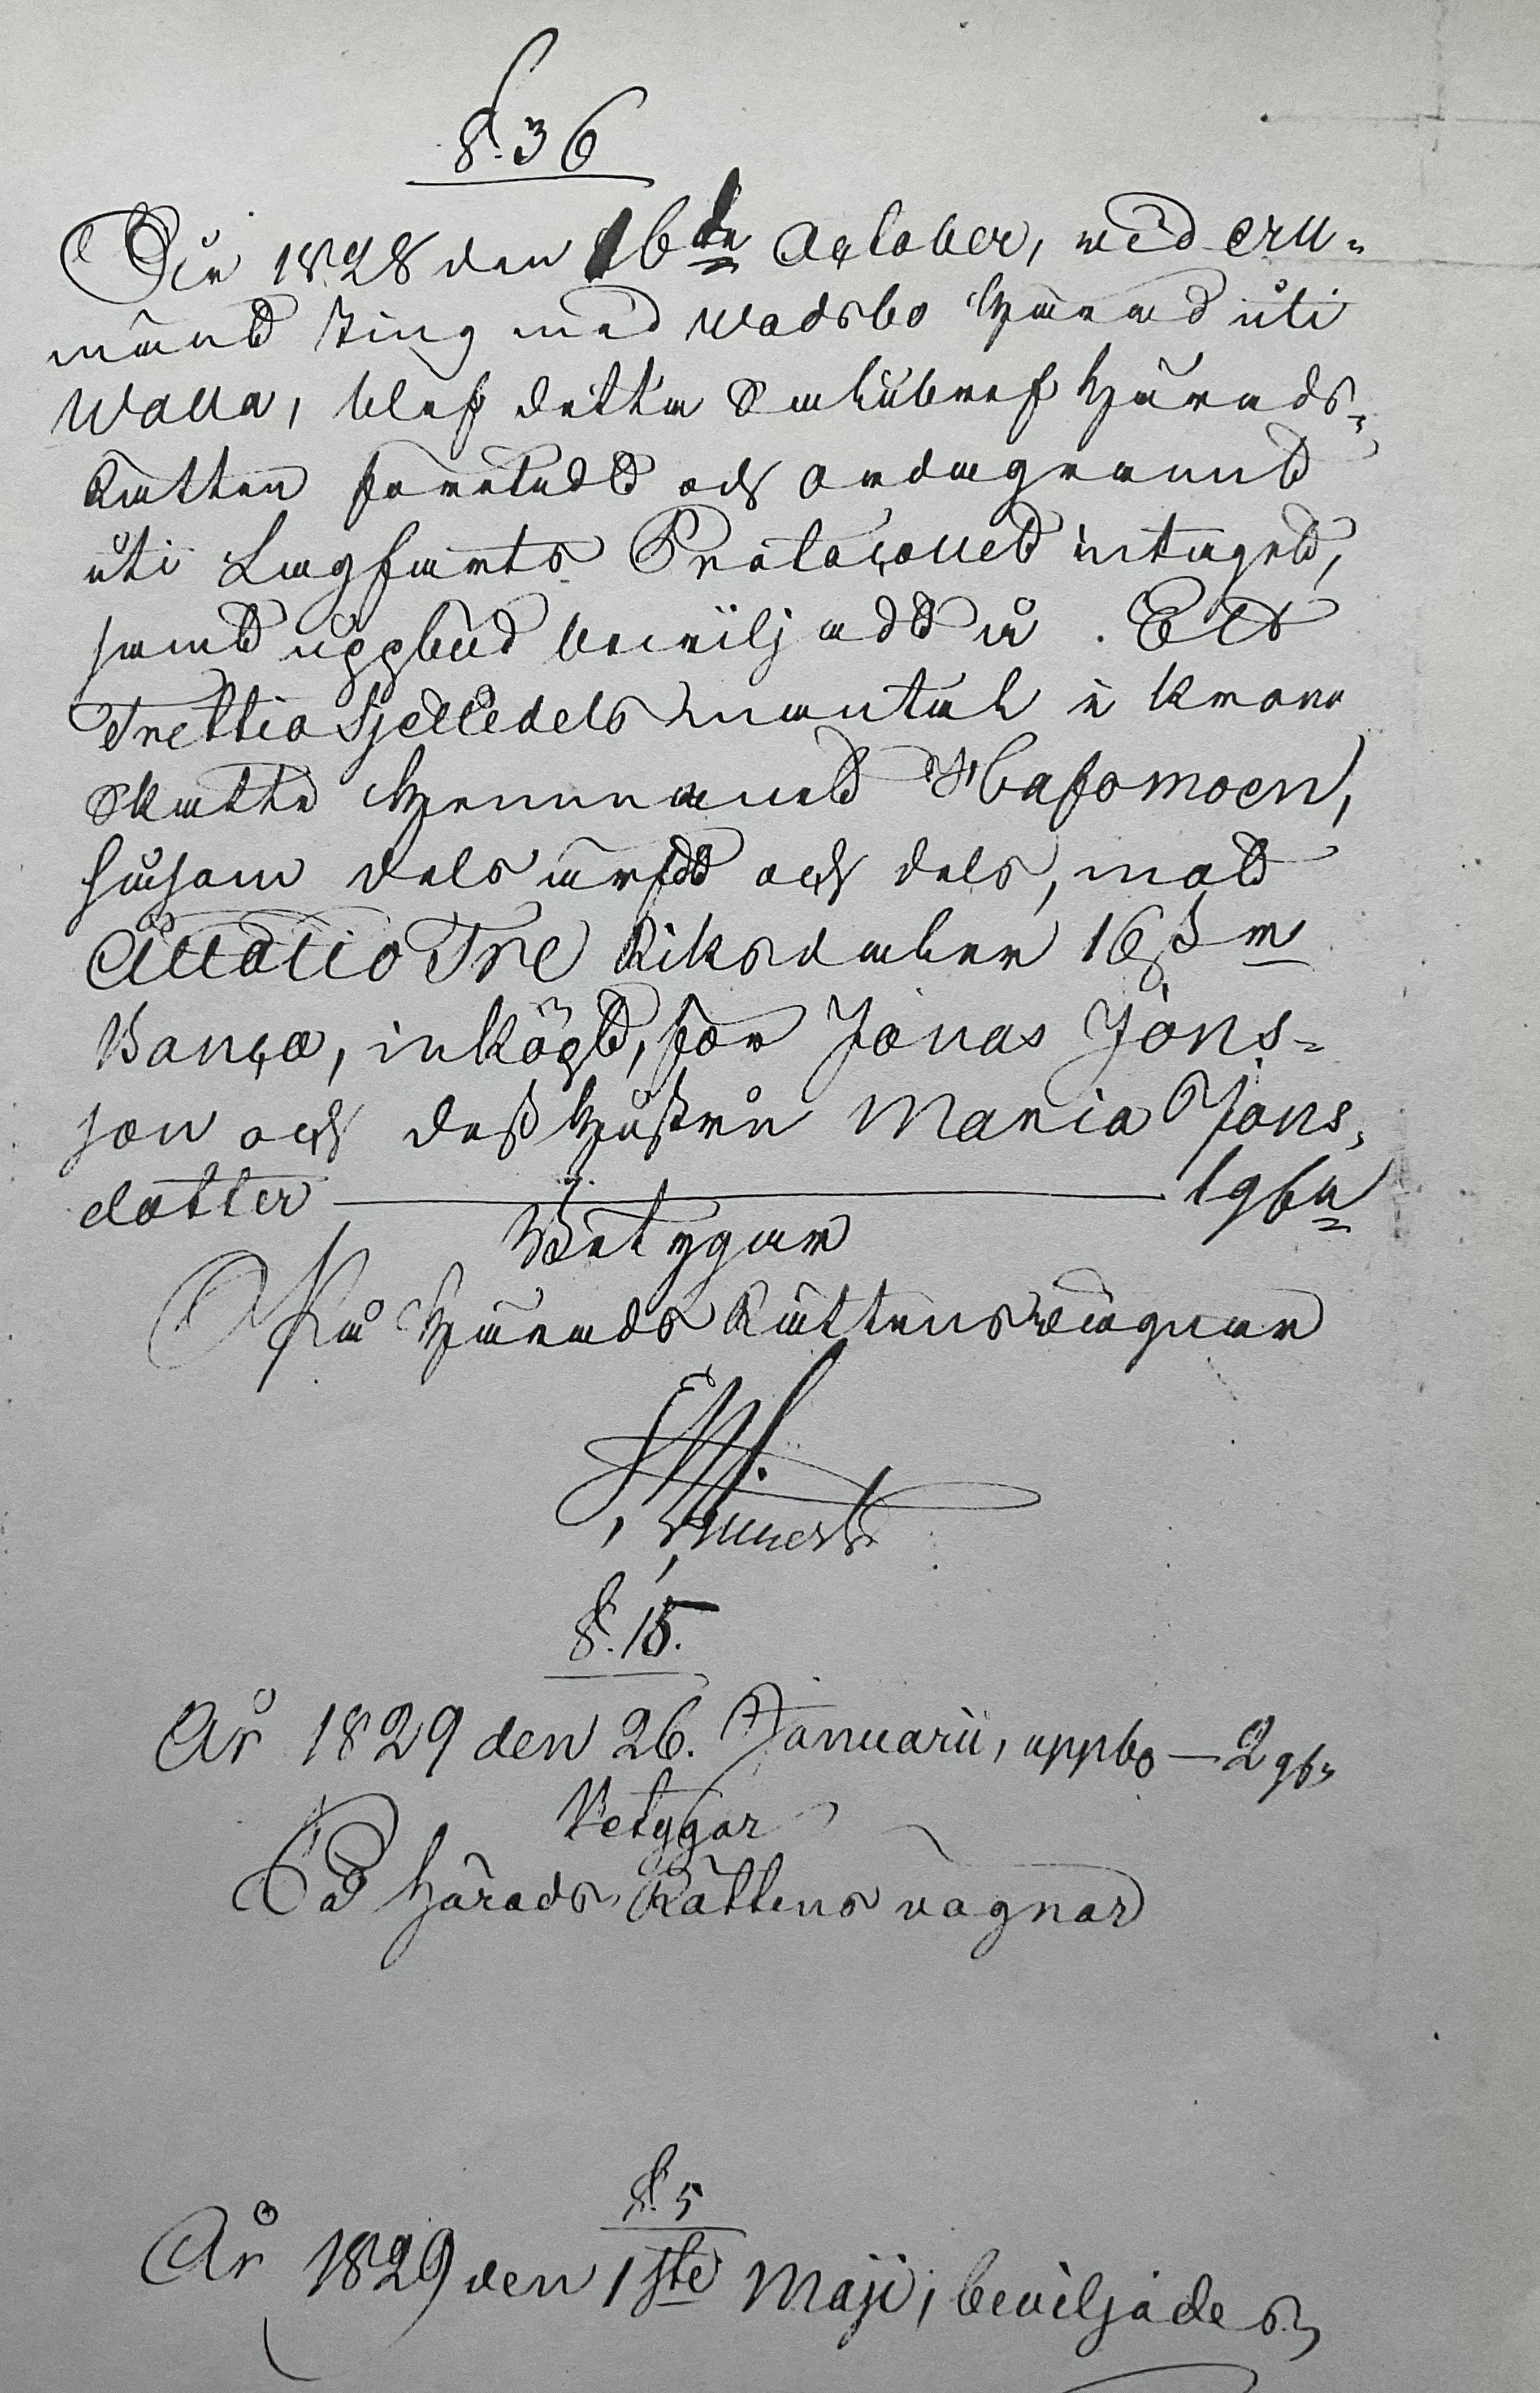 §. 36
År 1828 den 16de October, wid all-
männt Ting med Wadsbo Härad uti
Walla, blef detta Salubref Härads-
Rätten företedt och ordagrannt
uti Lagfarts Protocollet intaget,
samt uppbud beviljadt å Ett
Trettiosjettedels mantal i Krono
Skatte Hemmanet Hafomoen,
såsom dels ärfdt och dels, mot
Åttatio Tre Riksdaler 16 ß
Banco, inköpt, för Jonas Jons-
son och dess hustru Maria Jons-
dotter ——— 1 gån
Betygar
På Härads Rättens wägnar
§. 15.
År 1829 den 26. Januarii, uppbö — 2 g
Betygar
På Härads Rättens vägnar
§. 5
År 1829 den 1ste Maji, beviljades